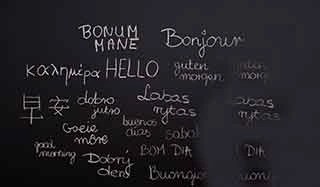 BONUM
MANE
Bonjour
καλημέρα
HELLO
guten
morgen
早安
dobro
jutro
Labas
rytas
Goeie
môre
buenos
días
good
morning
Dobrý
deň
BOM DIA
Buongio